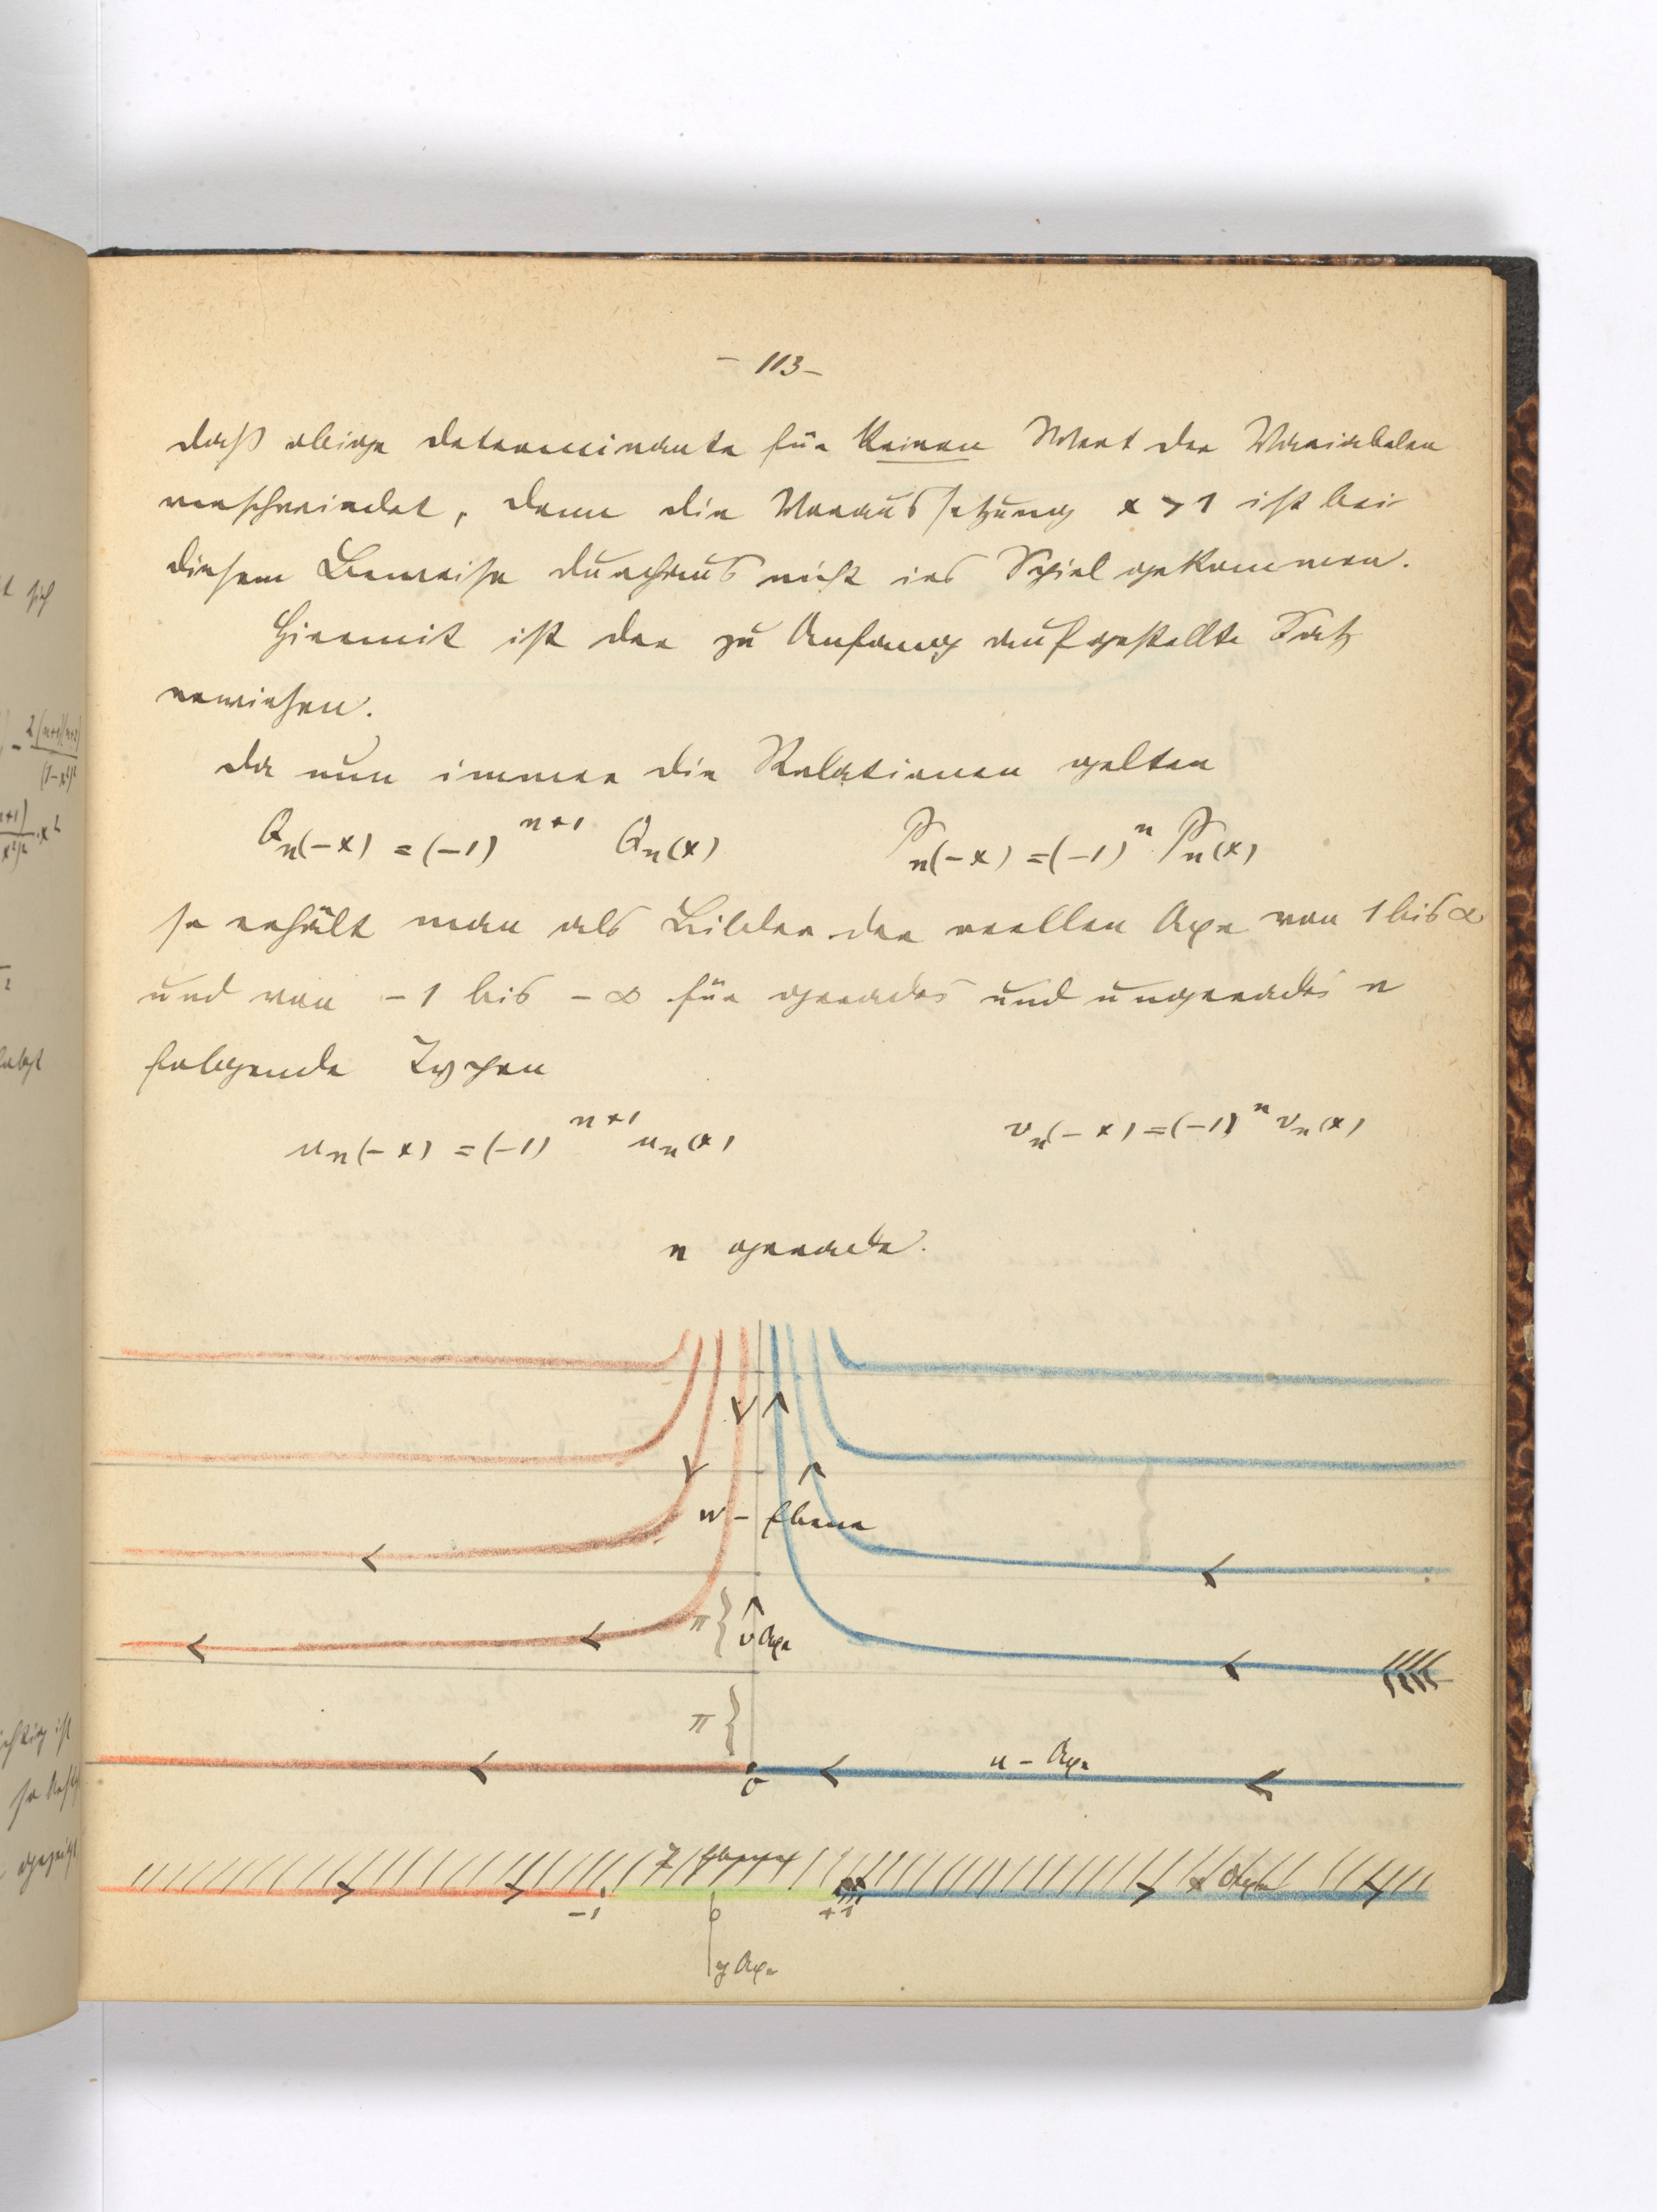 – 113 –
daß obige Determinante für keinen Wert der Variabelen
verschwindet, denn die Voraussetzung x > 1 ist bei
diesem Beweise durchaus nicht ins Spiel gekommen.
Hiermit ist der zu Anfang aufgestellte Satz
erwiesen.
Da nun immer die Relationen gelten
Qn(-x) = (-1)^{n+1} Qn(x) Pn(-x) = (-1)^n Pn(x)
so erhält man als Bilder der reellen Axe von 1 bis ∞
und von -1 bis -∞ für gerades und ungerades n
folgende Typen
un(-x) = (-1)^{n+1} un(x) vn(-x) = (-1)^n vn(x)
n gerade.
w – Ebene
π { v Axe
π {
u – Axe
0
Z Ebene
x Axe
-1 0 +1
y Axe